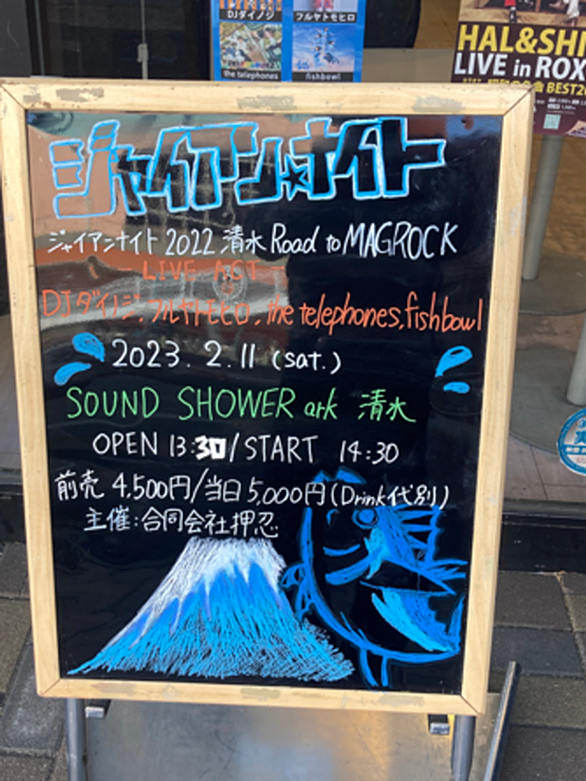 DJダイノジ
フルヤトモヒロ
the telephones
fishbowl
HAL&SHI
LIVE in ROX
BEST
ジャイアン☆ナイト
ジャイアンナイト 2022 清水 Road to MAGROCK
LIVE ACT
DJダイノジ,フルヤトモヒロ,the telephones,fishbowl
2023.2.11 (sat.)
SOUND SHOWER ark 清水
OPEN 13:30/START 14:30
前売 4,500円/当日5,000円(Drink代別)
主催:合同会社押忍